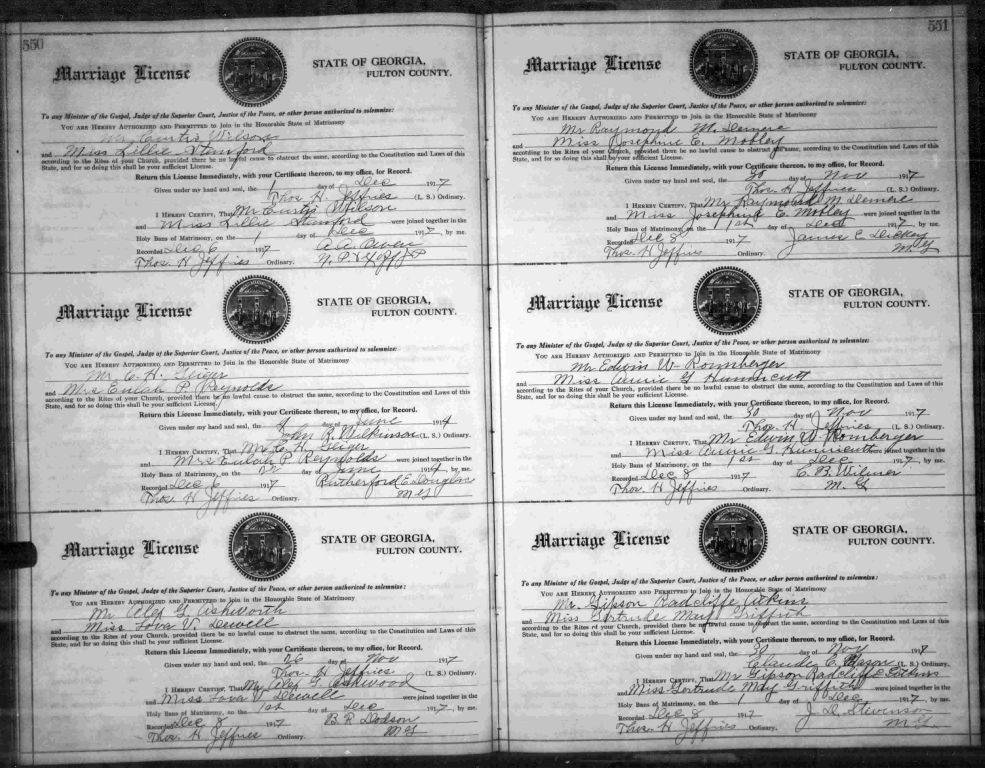 550
Marriage License
STATE OF GEORGIA,
FULTON COUNTY.
To any Minister of the Gospel, Judge of the Superior Court, Justice of the Peace, or other person authorized to solemnize:
YOU ARE HEREBY AUTHORIZED AND PERMITTED to Join in the Honorable State of Matrimony
Mr Curtis Wilson
and Miss Lillie Stanford
according to the Rites of your Church, provided there be no lawful cause to obstruct the same, according to the Constitution and Laws of this
State, and for so doing this shall be your sufficient License.
Return this License Immediately, with your Certificate thereon, to my office, for Record.
Given under my hand and seal, the 1 day of Dec 1917
Thos. H Jeffries (L. S.) Ordinary.
I HEREBY CERTIFY, That Mr Curtis Wilson
and Miss Lillie Stanford were joined together in the
Holy Bans of Matrimony, on the 1 day of Dec 1917, by me.
Recorded Dec 6 1917 A. A. Owen
Thos. H Jeffries Ordinary. N. P.
Marriage License
STATE OF GEORGIA,
FULTON COUNTY.
To any Minister of the Gospel, Judge of the Superior Court, Justice of the Peace, or other person authorized to solemnize:
YOU ARE HEREBY AUTHORIZED AND PERMITTED to Join in the Honorable State of Matrimony
Mr C. H. Geiger
and Mrs Eulah P. Reynolds
according to the Rites of your Church, provided there be no lawful cause to obstruct the same, according to the Constitution and Laws of this
State, and for so doing this shall be your sufficient License.
Return this License Immediately, with your Certificate thereon, to my office, for Record.
Given under my hand and seal, the 4 day of June 1914
Jno R. Wilkinson (L. S.) Ordinary.
I HEREBY CERTIFY, That Mr C. H. Geiger
and Mrs Eulah P Reynolds were joined together in the
Holy Bans of Matrimony, on the day of June 1914, by me.
Recorded Dec 6 1917 Rutherford E. Douglas
Thos H Jeffries Ordinary. M G
Marriage License
STATE OF GEORGIA,
FULTON COUNTY.
To any Minister of the Gospel, Judge of the Superior Court, Justice of the Peace, or other person authorized to solemnize:
YOU ARE HEREBY AUTHORIZED AND PERMITTED to Join in the Honorable State of Matrimony
Mr Olef G. Ashworth
and Miss Fova V. Dewell
according to the Rites of your Church, provided there be no lawful cause to obstruct the same, according to the Constitution and Laws of this
State, and for so doing this shall be your sufficient License.
Return this License Immediately, with your Certificate thereon, to my office, for Record.
Given under my hand and seal, the 26 day of Nov 1917
Thos H Jeffries (L. S.) Ordinary.
I HEREBY CERTIFY, That Mr Olef G. Ashwood
and Miss Fova V Dewell were joined together in the
Holy Bans of Matrimony, on the 1st day of Dec 1917, by me.
Recorded Dec 8 1917 B. R. Dodson
Thos. H Jeffries Ordinary. M G
551
Marriage License
STATE OF GEORGIA,
FULTON COUNTY.
To any Minister of the Gospel, Judge of the Superior Court, Justice of the Peace, or other person authorized to solemnize:
YOU ARE HEREBY AUTHORIZED AND PERMITTED to Join in the Honorable State of Matrimony
Mr Raymond M. Demere
and Miss Josephine E. Mobley
according to the Rites of your Church, provided there be no lawful cause to obstruct the same, according to the Constitution and Laws of this
State, and for so doing this shall be your sufficient License.
Return this License Immediately, with your Certificate thereon, to my office, for Record.
Given under my hand and seal, the 30 day of Nov 1917
Thos. H Jeffries (L. S.) Ordinary.
I HEREBY CERTIFY, That Mr Raymond M Demere
and Miss Josephine E Mobley were joined together in the
Holy Bans of Matrimony, on the 1st day of Dec 1917, by me.
Recorded Dec 8 1917 James E Dickey
Thos. H Jeffries Ordinary. M G
Marriage License
STATE OF GEORGIA,
FULTON COUNTY.
To any Minister of the Gospel, Judge of the Superior Court, Justice of the Peace, or other person authorized to solemnize:
YOU ARE HEREBY AUTHORIZED AND PERMITTED to Join in the Honorable State of Matrimony
Mr Edwin W. Romberger
and Miss Annie G Hunnicutt
according to the Rites of your Church, provided there be no lawful cause to obstruct the same, according to the Constitution and Laws of this
State, and for so doing this shall be your sufficient License.
Return this License Immediately, with your Certificate thereon, to my office, for Record.
Given under my hand and seal, the 30 day of Nov 1917
Thos. H. Jeffries (L. S.) Ordinary.
I HEREBY CERTIFY, That Mr Edwin W. Romberger
and Miss Annie G. Hunnicutt were joined together in the
Holy Bans of Matrimony, on the 1st day of Dec 1917, by me.
Recorded Dec 8 1917 C. B. Wilmer
Thos. H Jeffries Ordinary. M. G
Marriage License
STATE OF GEORGIA,
FULTON COUNTY.
To any Minister of the Gospel, Judge of the Superior Court, Justice of the Peace, or other person authorized to solemnize:
YOU ARE HEREBY AUTHORIZED AND PERMITTED to Join in the Honorable State of Matrimony
Mr. Gipson Radcliffe Atkins
and Miss Gertrude May Griffith
according to the Rites of your Church, provided there be no lawful cause to obstruct the same, according to the Constitution and Laws of this
State, and for so doing this shall be your sufficient License.
Return this License Immediately, with your Certificate thereon, to my office, for Record.
Given under my hand and seal, the 30 day of Nov 191
Claude C. Mason (L. S.) Ordinary.
I HEREBY CERTIFY, That Mr Gipson Radcliffe Atkins
and Miss Gertrude May Griffith were joined together in the
Holy Bans of Matrimony, on the 1 day of Dec 1917, by me.
Recorded Dec 8 1917 J. D. Stevenson
Thos. H Jeffries Ordinary. M G